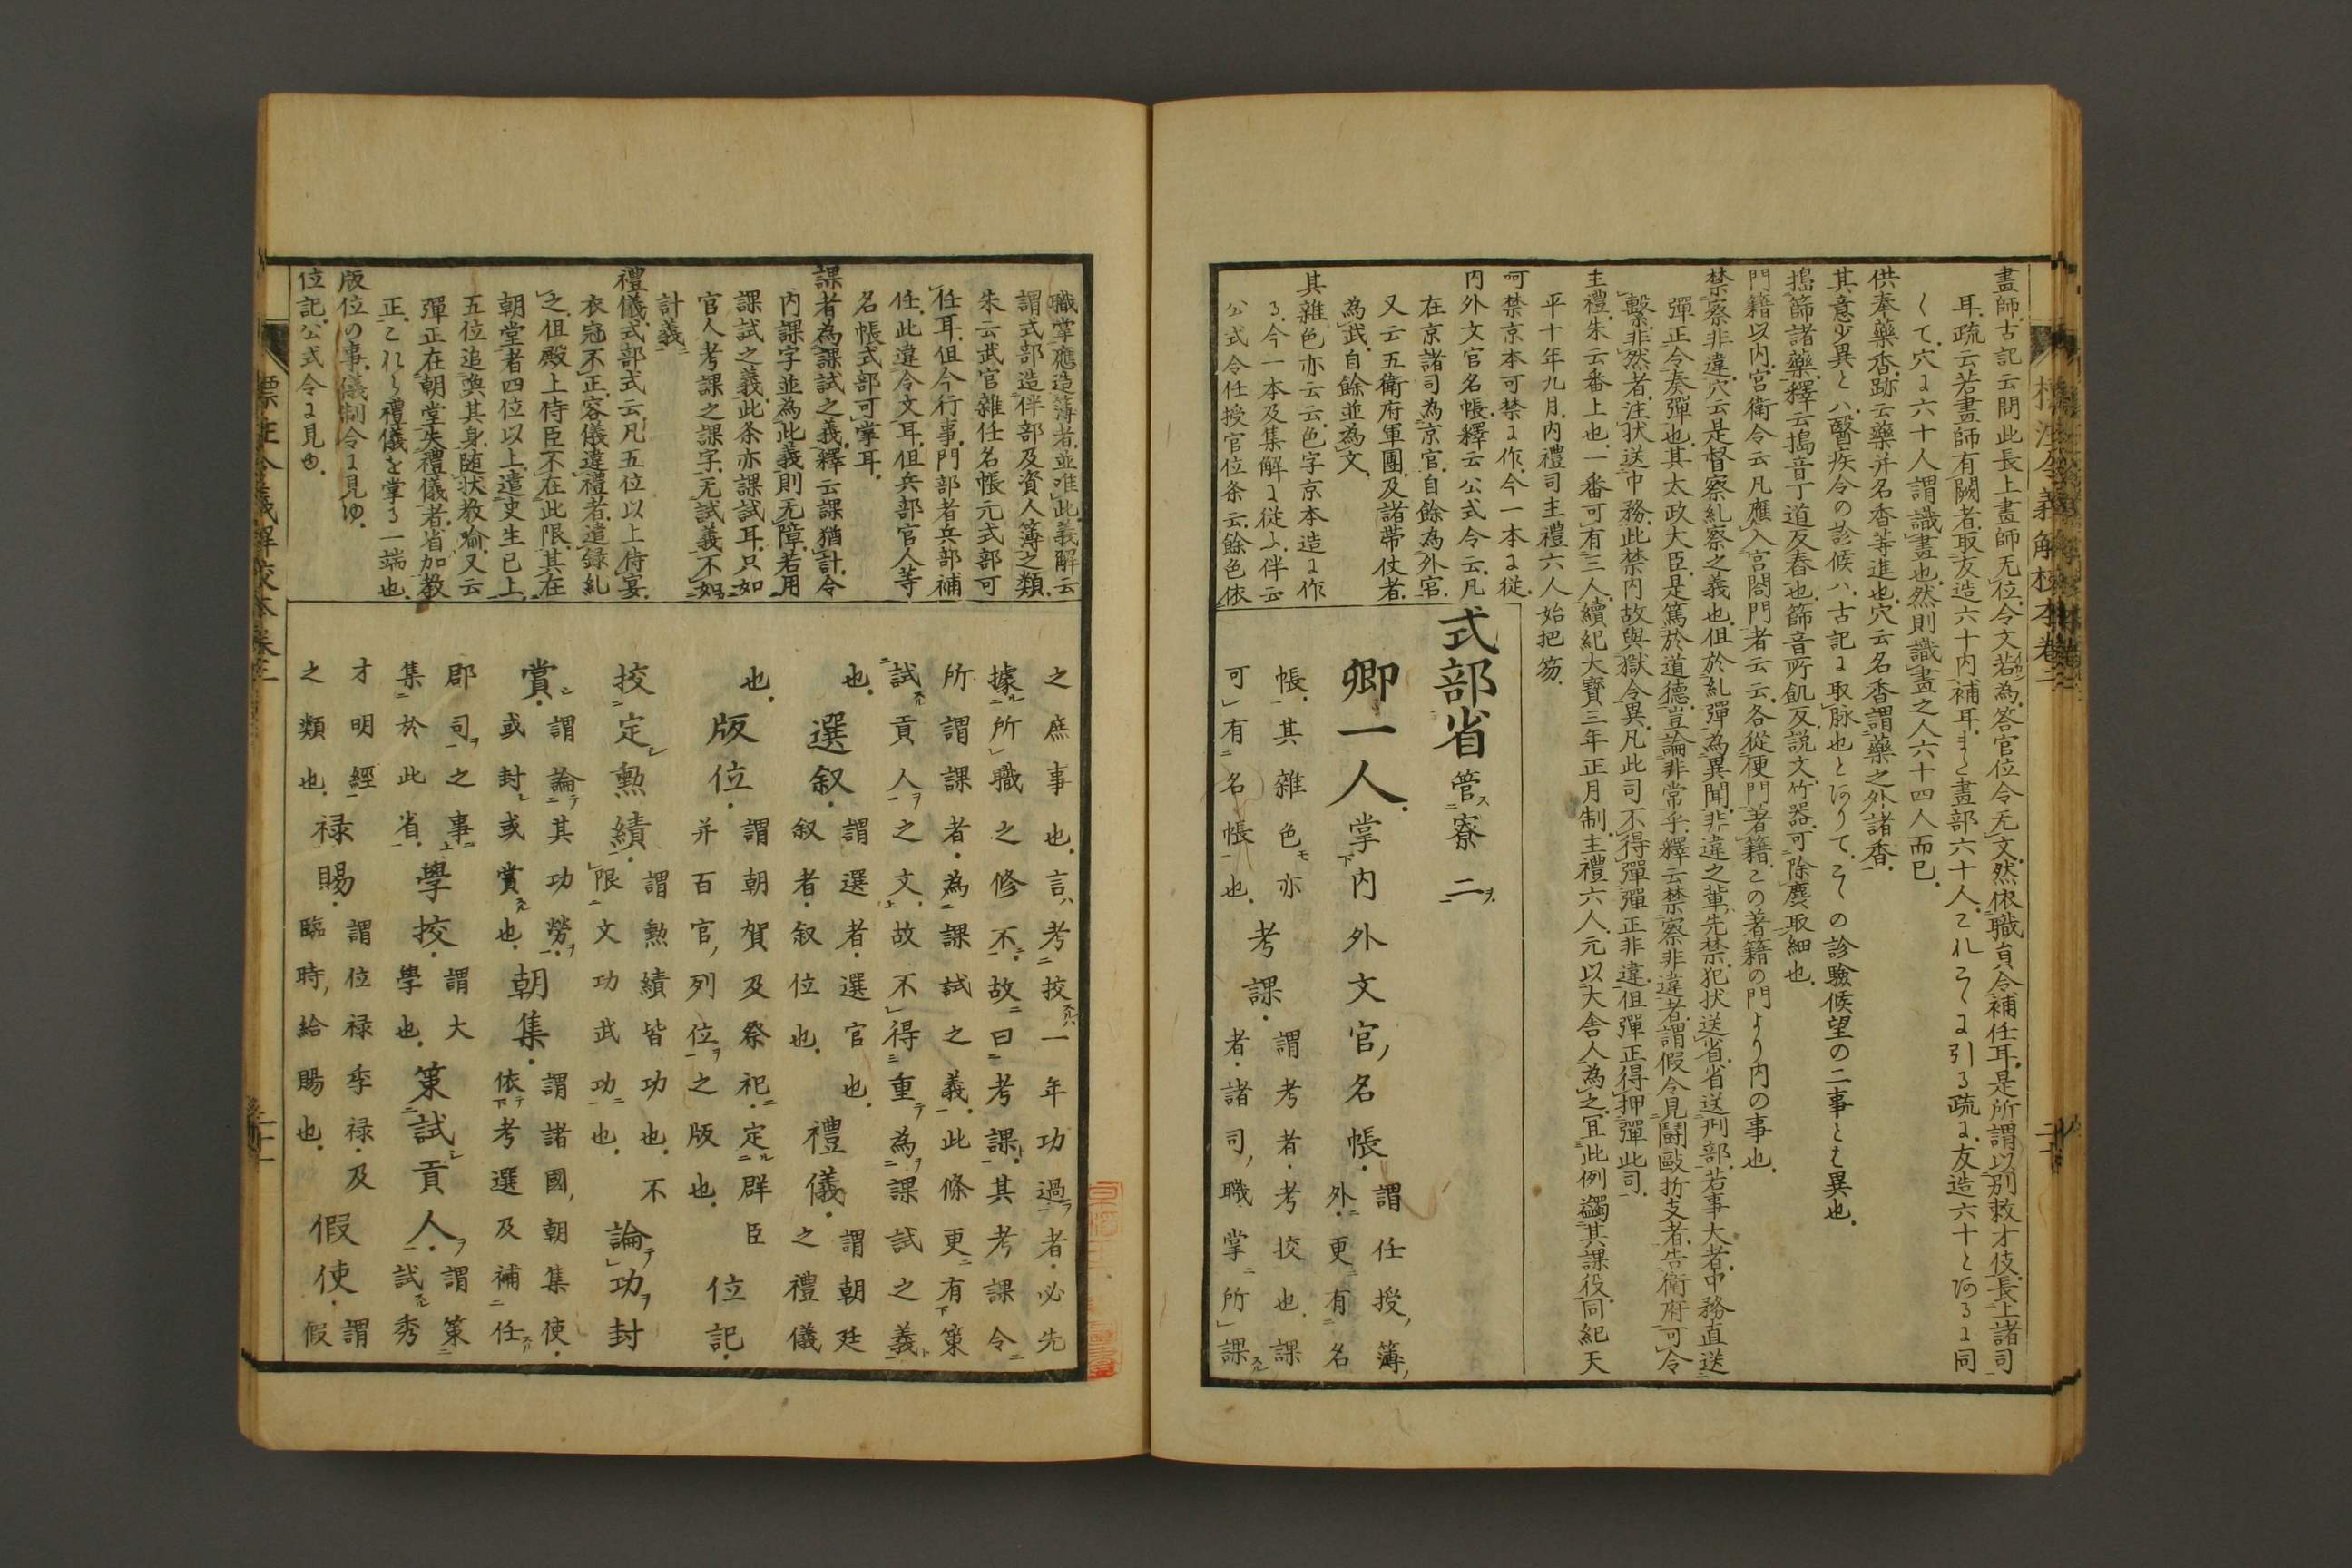 標注令義解校本卷二
畫師古記云問此長上畫師无位令文若為答官位令无文然依職員令補任耳是所謂以別敕才伎長上諸司
耳疏云若畫師有闕者取友造六十内補耳
畫部六十人
穴
六十人謂識畫也然則識畫之人六十四人而已
供奉藥香跡云藥并名香等進也穴云名香謂藥之外諸香
其意少異
醫疾令の診候ハ古記
取脉也
の診驗候望の二事とハ異也
搗篩諸藥釋云搗音丁道反舂也篩音所飢反説文竹器可除麁取細也
門籍以内宮衛令云凡應入宮閤門者云云各從便門著籍この著籍の門より内の事也
禁察非違穴云是督察糺察之義也但於糺彈為異聞非違之輩先禁犯状送省省送刑部若事大者中務直送
彈正令奏彈也其太政大臣是篤於道德豈論非常乎釋云禁察非違者謂假令見鬪毆折支者告衛府可令
繋非然者注状送中務此禁内故與獄令異凡此司不得彈彈正非違但彈正得押彈此司
主禮朱云番上也一番可有三人續紀大寶三年正月制主禮六人元以大舎人為之宜此例蠲其課役同紀天
平十年九月内禮司主禮六人始把笏
呵禁京本可禁に作今一本に從
内外文官名帳釋云公式令云凡
在京諸司為京官自餘為外官
又云五衛府軍團及諸帶仗者
為武自餘並為文
其雜色亦云云色字京本造に作
る今一本及集解に從ふ伴云
公式令任授官位条云餘色依
式部省管寮二
卿一人掌内外文官名帳謂任授簿外更有名
帳其雜色亦
可有名帳也考課謂考者考校也課
者諸司職掌所課
職掌應造簿者並唯此義解云
謂式部造伴部及資人簿之類
朱云武官雜任名帳元式部可
任耳但今行事門部者兵部補
任此違令文耳但兵部官人等
名帳式部可掌耳
課者為課試之義釋云課猶計令
内課字並為此義則无障若用
課試之義此条亦課試耳只如
官人考課之課字无試義不如
計義
禮儀式部式云凡五位以上侍宴
衣冠不正容儀違禮者遣録糺
之但殿上侍臣不在此限其在
朝堂者四位以上遣史生已上
五位追喚其身随状教喩又云
彈正在朝堂失禮儀者省加教
正これら禮儀を掌る一端也
版位の事儀制令に見ゆ
位記公式令に見ゆ
之庶事也言考校一年功過者必先
據所職之修不故曰考課其考課令
所謂課者為課試之義此條更有策
試貢人之文故不得重為課試之義
也選叙謂選者選官也
叙者叙位也禮儀謂朝廷
之禮儀
也版位謂朝賀及祭祀定群臣
并百官列位之版也位記
校定勲績謂勲績皆功也不
限文功武功也論功封
賞謂論其功勞
或封或賞也朝集謂諸國朝集使
依考選及補任
郡司之事
集於此省學校謂大
學也策試貢人謂策
試秀
才明經
之類也禄賜謂位禄季禄及
臨時給賜也假使謂
假
標注令義解校本卷二